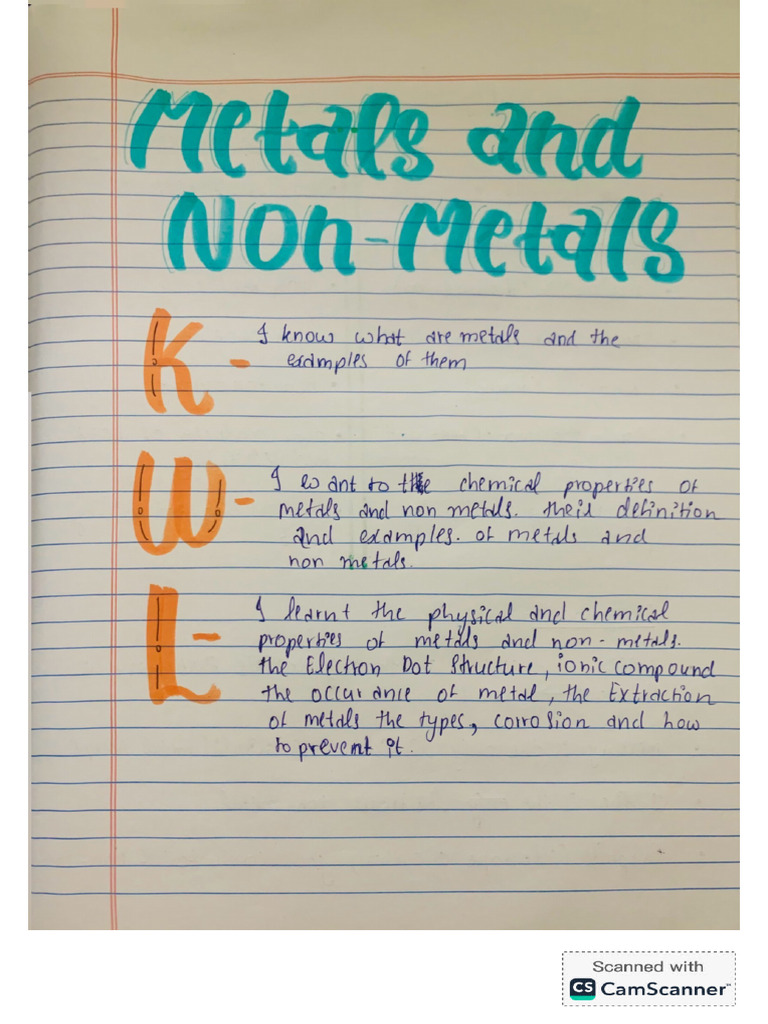 Metals and
Non-Metals
K - I know what are metals and the
examples of them
W - I want to the chemical properties of
metals and non metals. their definition
and examples. of metals and
non metals.
L - I learnt the physical and chemical
properties of metals and non-metals.
the Electron Dot Structure, ionic compound
the occurance of metal, the Extraction
of metals the types, corrosion and how
to prevent it.
Scanned with
CS CamScanner™